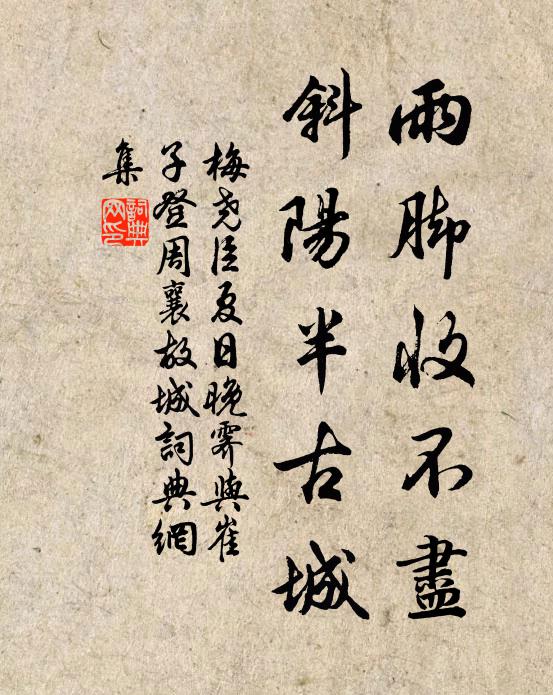 雨脚收不盡
斜陽半古城
梅堯臣夏日晚霽與崔
子登周襄故城詞典網
集
詞典網印